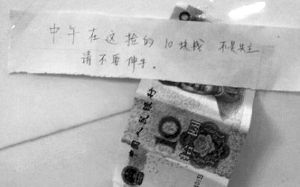 中午在这捡的10块钱 不是失主
请不要伸手。
中国人民银行
10